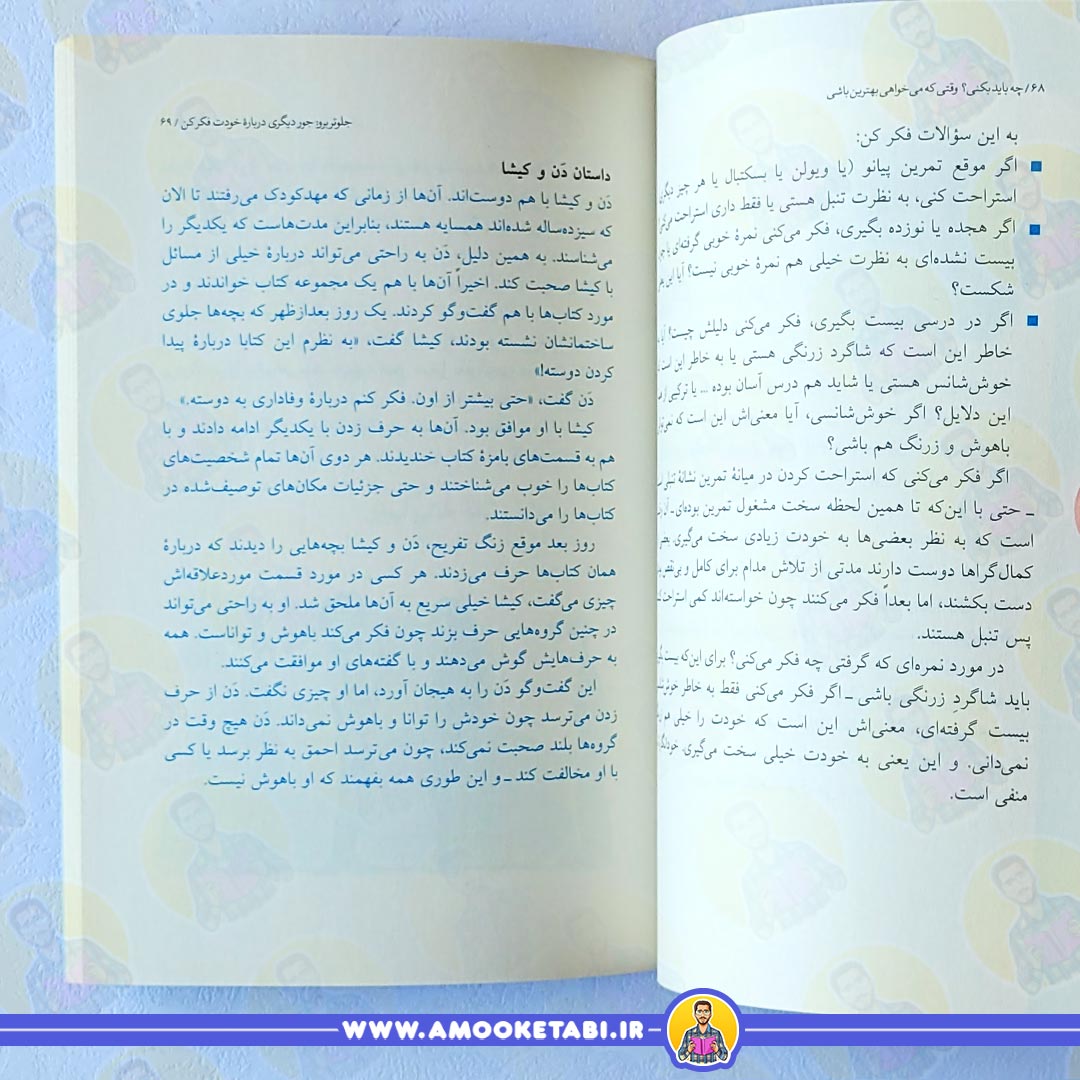 ۶۸/ چه باید بکنی؟ وقتی که می‌خواهی بهترین باشی
به این سؤالات فکر کن:
■ اگر موقع تمرین پیانو (یا ویولن یا بسکتبال یا هر چیز دیگری
استراحت کنی، به نظرت تنبل هستی یا فقط داری استراحت
■ اگر هجده یا نوزده بگیری، فکر می‌کنی نمرهٔ خوبی گرفته‌ای یا چون
بیست نشده‌ای به نظرت خیلی هم نمرهٔ خوبی نیست؟ آیا این
شکست؟
■ اگر در درسی بیست بگیری، فکر می‌کنی دلیلش چیست؟ آیا
خاطر این است که شاگرد زرنگی هستی یا به خاطر این است
خوش‌شانس هستی یا شاید هم درس آسان بوده ... یا ترکیبی از
این دلایل؟ اگر خوش‌شانسی، آیا معنی‌اش این است که
باهوش و زرنگ هم باشی؟
اگر فکر می‌کنی که استراحت کردن در میانهٔ تمرین نشانهٔ
ـ حتی با این‌که تا همین لحظه سخت مشغول تمرین بوده‌ای ـ آن
است که به نظر بعضی‌ها به خودت زیادی سخت می‌گیری.
کمال‌گراها دوست دارند مدتی از تلاش مدام برای کامل و بی‌نقص
دست بکشند، اما بعداً فکر می‌کنند چون خواسته‌اند کمی استراحت
پس تنبل هستند.
در مورد نمره‌ای که گرفتی چه فکر می‌کنی؟ برای این‌که بیست
باید شاگرد زرنگی باشی ـ اگر فکر می‌کنی فقط به خاطر
بیست گرفته‌ای، معنی‌اش این است که خودت را خیلی
نمی‌دانی. و این یعنی به خودت خیلی سخت می‌گیری،
منفی است.
جلوتر برو: جور دیگری دربارهٔ خودت فکر کن / ۶۹
داستان دَن و کیشا
دَن و کیشا با هم دوست‌اند. آن‌ها از زمانی که مهدکودک می‌رفتند تا الان
که سیزده‌ساله شده‌اند همسایه هستند، بنابراین مدت‌هاست که یکدیگر را
می‌شناسند. به همین دلیل، دَن به راحتی می‌تواند دربارهٔ خیلی از مسائل
با کیشا صحبت کند. اخیراً آن‌ها با هم یک مجموعه کتاب خواندند و در
مورد کتاب‌ها با هم گفت‌وگو کردند. یک روز بعدازظهر که بچه‌ها جلوی
ساختمانشان نشسته بودند، کیشا گفت، «به نظرم این کتابا دربارهٔ پیدا
کردن دوسته!»
دَن گفت، «حتی بیشتر از اون. فکر کنم دربارهٔ وفاداری به دوسته.»
کیشا با او موافق بود. آن‌ها به حرف زدن با یکدیگر ادامه دادند و با
هم به قسمت‌های بامزهٔ کتاب خندیدند. هر دوی آن‌ها تمام شخصیت‌های
کتاب‌ها را خوب می‌شناختند و حتی جزئیات مکان‌های توصیف‌شده در
کتاب‌ها را می‌دانستند.
روز بعد موقع زنگ تفریح، دَن و کیشا بچه‌هایی را دیدند که دربارهٔ
همان کتاب‌ها حرف می‌زدند. هر کسی در مورد قسمت موردعلاقه‌اش
چیزی می‌گفت، کیشا خیلی سریع به آن‌ها ملحق شد. او به راحتی می‌تواند
در چنین گروه‌هایی حرف بزند چون فکر می‌کند باهوش و تواناست. همه
به حرف‌هایش گوش می‌دهند و با گفته‌های او موافقت می‌کنند.
این گفت‌وگو دَن را به هیجان آورد، اما او چیزی نگفت. دَن از حرف
زدن می‌ترسد چون خودش را توانا و باهوش نمی‌داند. دَن هیچ وقت در
گروه‌ها بلند صحبت نمی‌کند، چون می‌ترسد احمق به نظر برسد یا کسی
با او مخالفت کند ـ و این طوری همه بفهمند که او باهوش نیست.
WWW.AMOOKETABI.IR